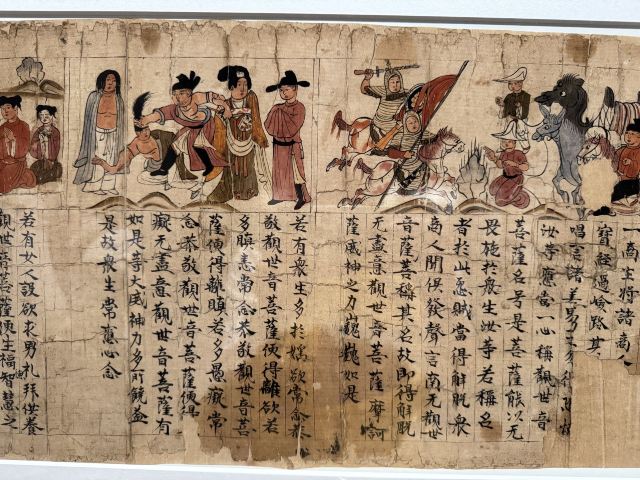 一商主將諸商人
寶經過嶮路其
唱言諸善男子勿得
汝等應當一心稱觀世音
菩薩名号是菩薩能以无
畏施於衆生汝等若稱名
者於此怨賊當得解脫衆
商人聞俱發聲言南无觀世
音薩菩稱其名故即得解脫
无盡意觀世音菩薩摩訶
薩威神之力巍巍如是
若有衆生多於婬欲常念恭
敬觀世音菩薩便得離欲若
多瞋恚常念恭敬觀世音菩
薩便得離瞋若多愚癡常
念恭敬觀世音菩薩便得
癡无盡意觀世音菩薩有
如是等大威神力多所饒益
是故衆生常應心念
若有女人設欲求男礼拜供養
觀世音菩薩便生福智慧之